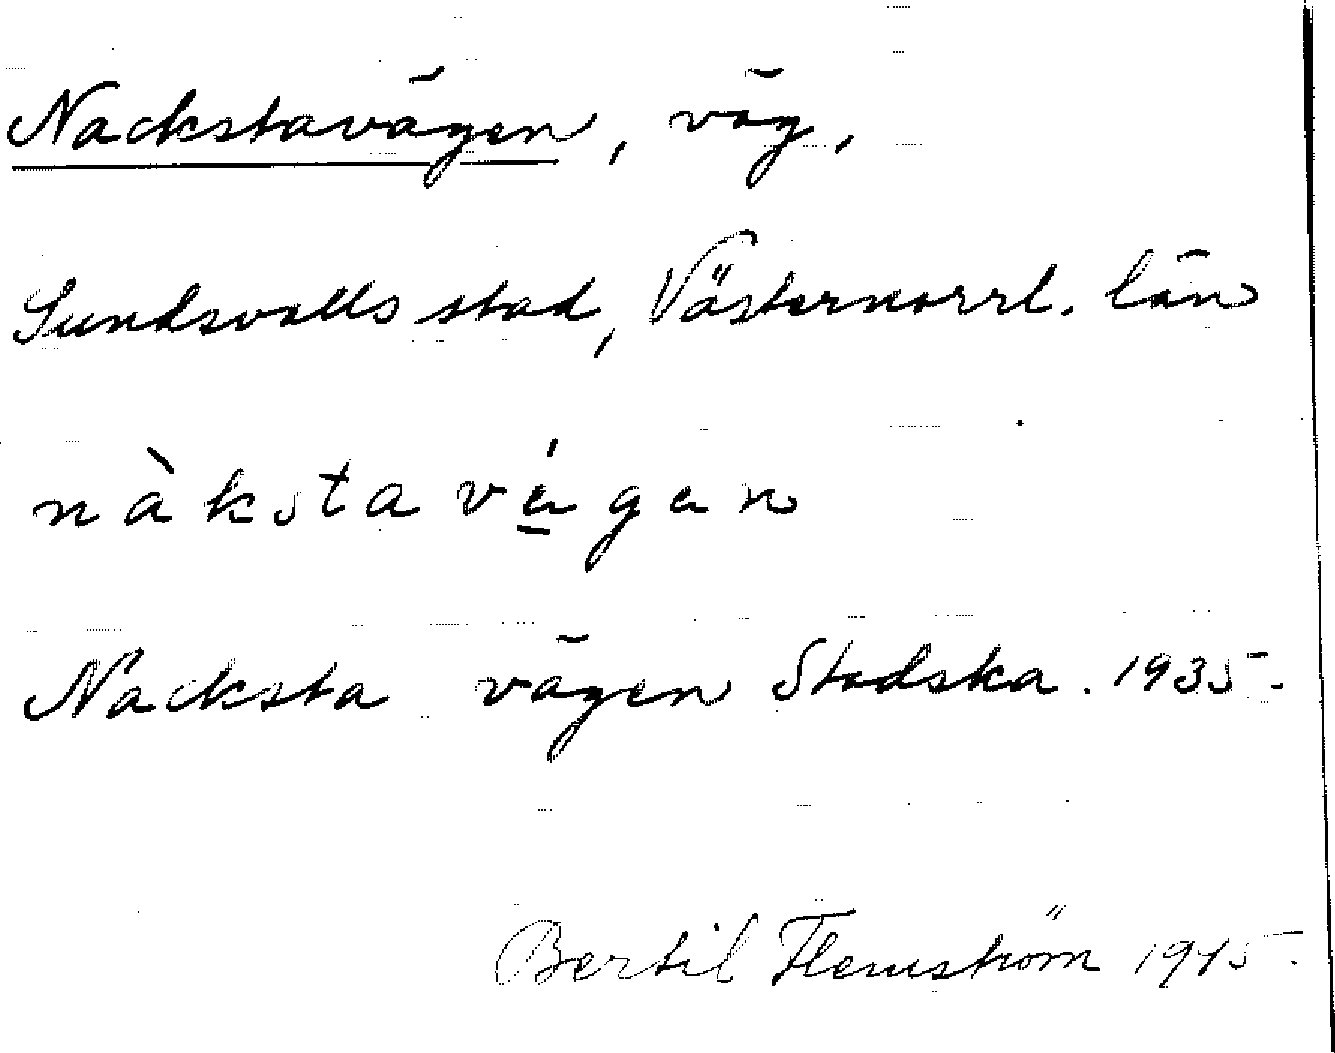 Nackstavägen, väg,
Sundsvalls stad, Västernorrl. län
nàkstavä́gen
Nacksta vägen Stadska. 1935.
Bertil Flemström 1945.